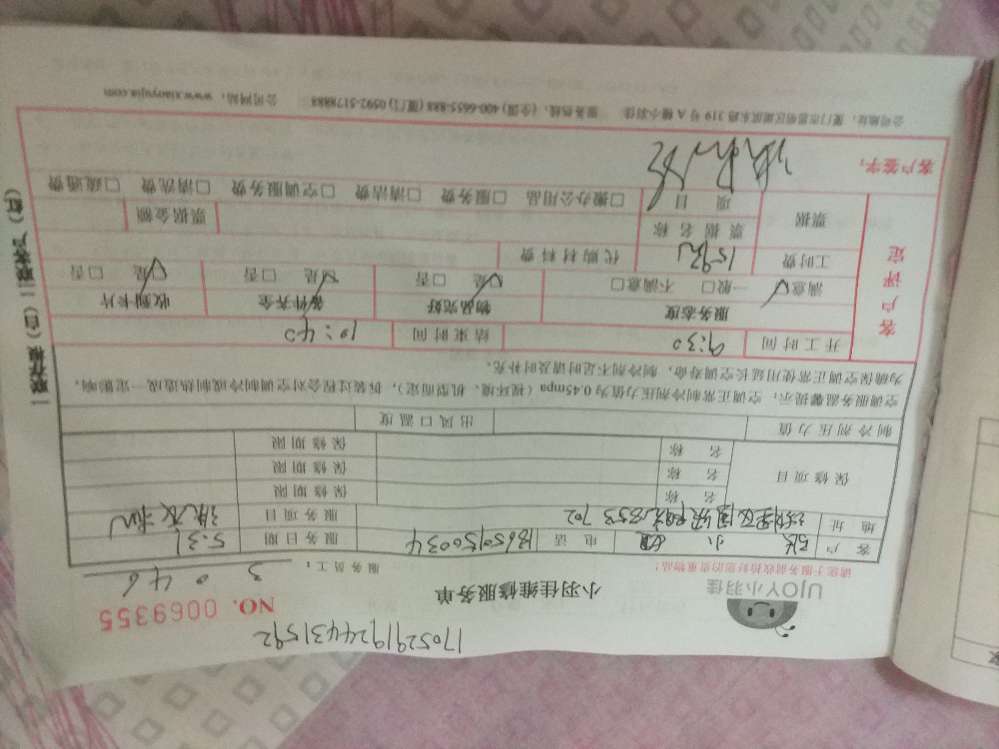 1705291924431592
UJOY小羽佳
小羽佳维修服务单
NO. 0069355
请您于服务前收拾好您的贵重物品!
服务员工: 3046
客户 电话 13650150034 服务日期 5.31
地址 702 服务项目 洗衣机
保修项目 名称 保修期限
名称 保修期限
名称 保修期限
制冷剂压力值 出风口温度
空调服务温馨提示:空调正常制冷剂压力值为0.45mpa(视环境、机型而定),拆装过程会对空调制冷或制热造成一定影响,
为确保空调正常使用延长空调寿命,制冷剂不足时请及时补充。
客户评定
开工时间 9:30 结束时间 10:40
服务态度 物品完好 备件齐全 收到卡片
满意□ 一般□ 不满意□ 是 □否 是 □否 是 □否
工时费 159元 代购材料费
票据 票据名称 票据金额
项目 □搬办公用品 □服务费 □清洁费 □空调服务费 □清洗费 □疏通费
客户签字:
公司地址:厦门市思明区湖滨东路319号A幢小羽佳 服务热线:(全国)400-6655-888 (厦门)0592-5178888 公司网站:www.xiaoyujia.com
一联存根(白)二联客户(红)